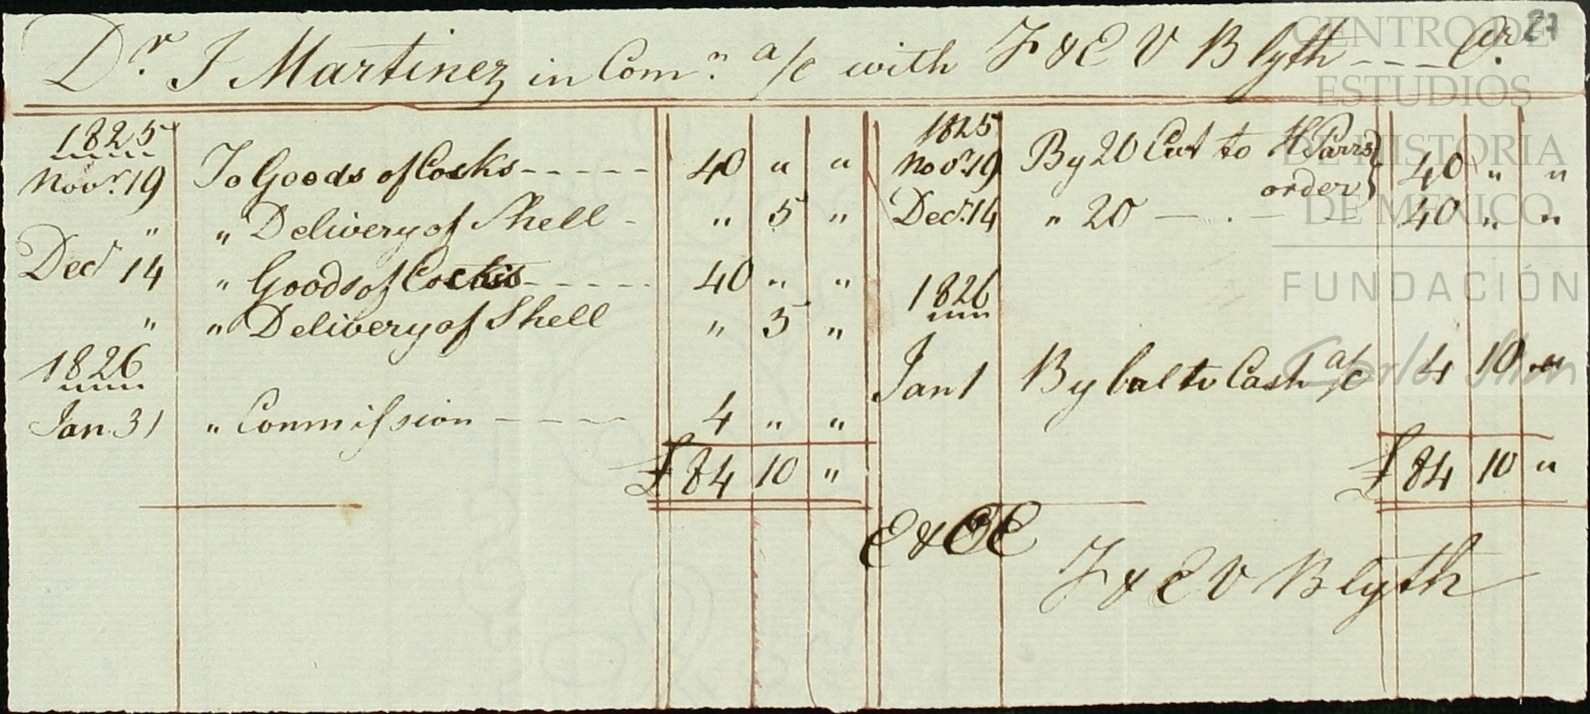 Dr. J Martinez in Com.n a/c with F & E V Blyth --- Cr.
27
1825
Novr. 19 To Goods of Cocks ----- 40 " "
" " Delivery of Shell - " 5 "
Decr 14 " Goods of Cocks ----- 40 " "
" " Delivery of Shell " 5 "
1826
Jan 31 " Commission ---- 4 " "
£ 84 10 "
1825
Novr. 19 By 20 Cwt to H Parrs order 40 " "
Decr. 14 " 20 — . — 40 " "
1826
Jan 1 By bal to Cash a/c 4 10 "
£ 84 10 "
E & OE
F & E V Blyth
CENTRO DE
ESTUDIOS
DE HISTORIA
DE MÉXICO
FUNDACIÓN
Carlos Slim